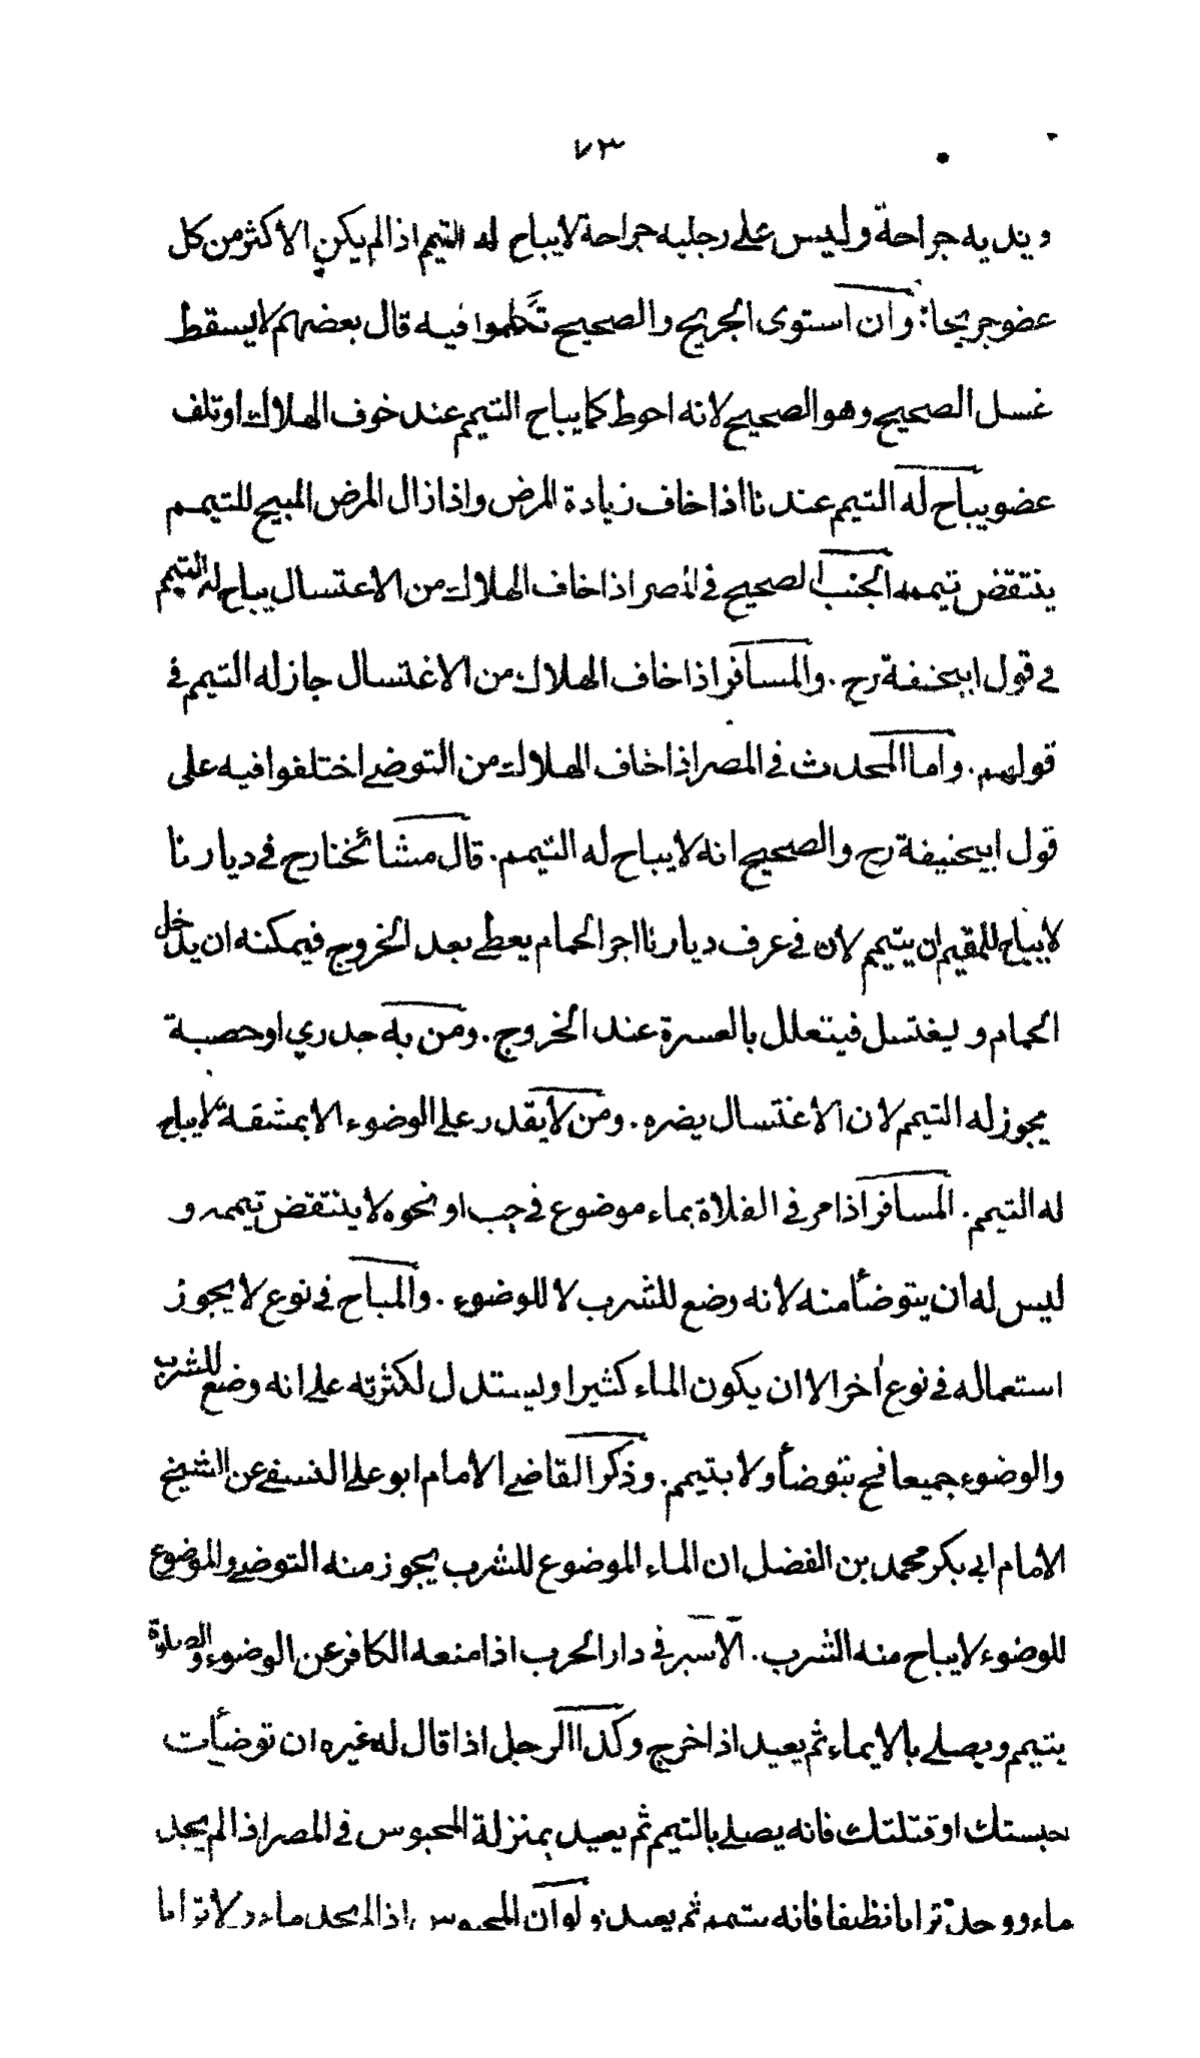 ٧٣
ويديه جراحة وليس على رجليه جراحة لا يباح له التيمم اذا لم يكن الاكثر من كل
عضو جريحا. وان استوى الجريح والصحيح تكلموا فيه قال بعضهم لا يسقط
غسل الصحيح وهو الصحيح لانه احوط كما يباح التيمم عند خوف الهلاك او تلف
عضو يباح له التيمم عندنا اذا خاف زيادة المرض واذا زال المرض المبيح للتيمم
ينتقض تيممه الجنب الصحيح في المصر اذا خاف الهلاك من الاغتسال يباح له التيمم
في قول ابيحنيفة رح . والمسافر اذا خاف الهلاك من الاغتسال جاز له التيمم في
قولهم . واما المحدث في المصر اذا خاف الهلاك من التوضي اختلفوا فيه على
قول ابيحنيفة رح والصحيح انه لا يباح له التيمم . قال مشائخنا رح في ديارنا
لا يباح للمقيم ان يتيمم لان في عرف ديارنا اجر الحمام يعطى بعد الخروج فيمكنه ان يدخل
الحمام و يغتسل فيتعلل بالعسرة عند الخروج . ومن به جدري او حصبة
يجوز له التيمم لان الاغتسال يضره . ومن لا يقدر على الوضوء الا بمشقة لا يباح
له التيمم . المسافر اذا مر في الفلاة بماء موضوع في حب او نحوه لا ينتقض تيممه و
ليس له ان يتوضأ منه لانه وضع للشرب لا للوضوء . والمباح في نوع لا يجوز
استعماله في نوع أخر الا ان يكون الماء كثيرا ويستدل لكثرته على انه وضع للشرب
والوضوء جميعا فح يتوضأ ولا يتيمم . وذكر القاضي الامام ابو علي النسفي عن الشيخ
الامام ابي بكر محمد بن الفضل ان الماء الموضوع للشرب يجوز منه التوضي والموضوع
للوضوء لا يباح منه الشرب . الاسير في دار الحرب اذا منعه الكافر عن الوضوء والصلوة
يتيمم ويصلي بالايماء ثم يعيد اذا خرج وكذا الرجل اذا قال له غيره ان توضأت
حبستك او قتلتك فانه يصلي بالتيمم ثم يعيد بمنزلة المحبوس في المصر اذا لم يجد
ماء ووجد ترابا نظيفا فانه يتيمم ثم يعيد ولو ان المحبوس اذا لم يجد ماء ولا ترابا